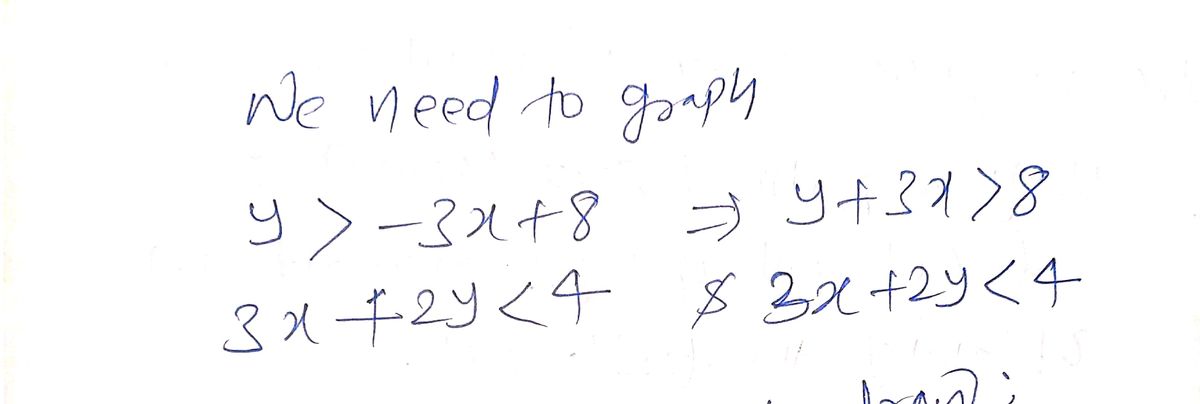 We need to graph
y > -3x+8 ⇒ y+3x>8
3x+2y<4 & 3x+2y<4